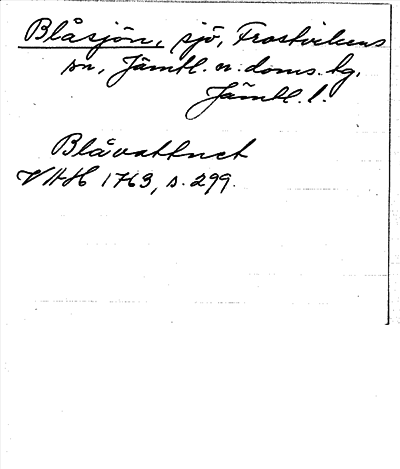 Blåsjön, sjö, Frostvikens
sn, Jämtl. n. doms. tg,
Jämtl. l.
Blåvattnet
VAH 1763, s. 299.